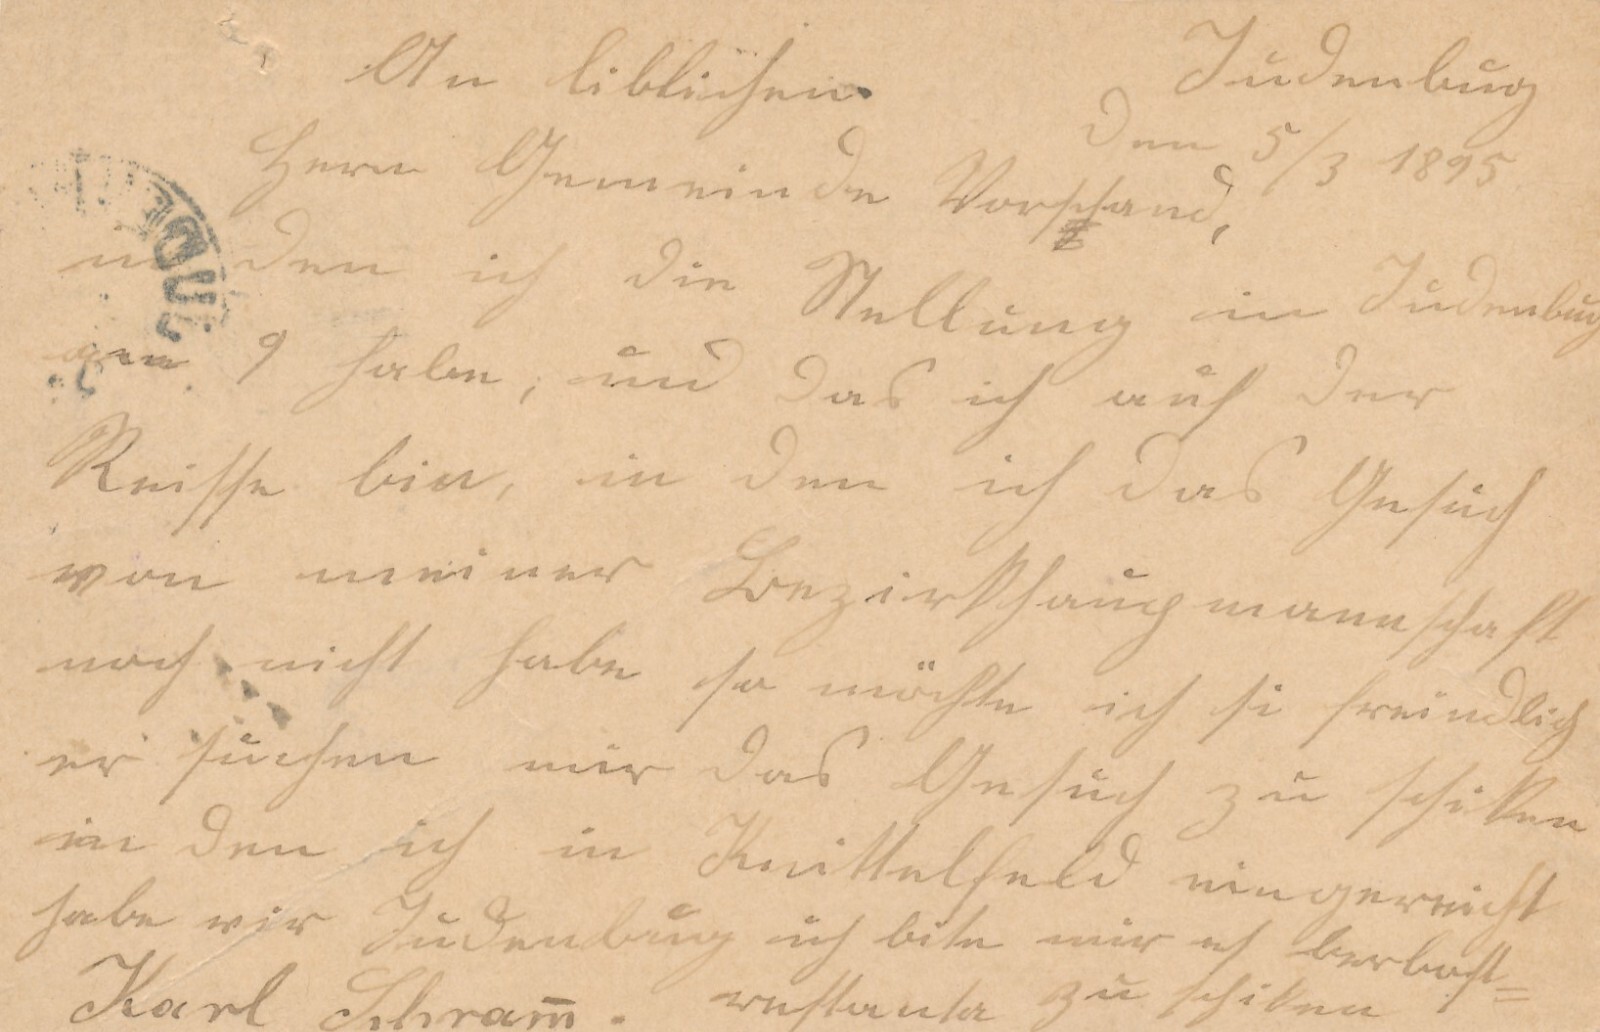 An liblichen Judenbug
den 5/3 1895
Herrn Gemeinde Vorstand,
in den ich die Stellung in Judenbug
9 habe, und das ich auf der
Reisse bin, in den ich das Gesuch
von meiner Bezirkshaupmannschaft
noch nicht habe so möchte ich si freindlich
er suchen mir das Gesuch zu schiken
in den ich in Knittelfeld eingereicht
habe vir Judenbug ich bite mir es
Karl Schram̅. restante zu schiken
JUDE